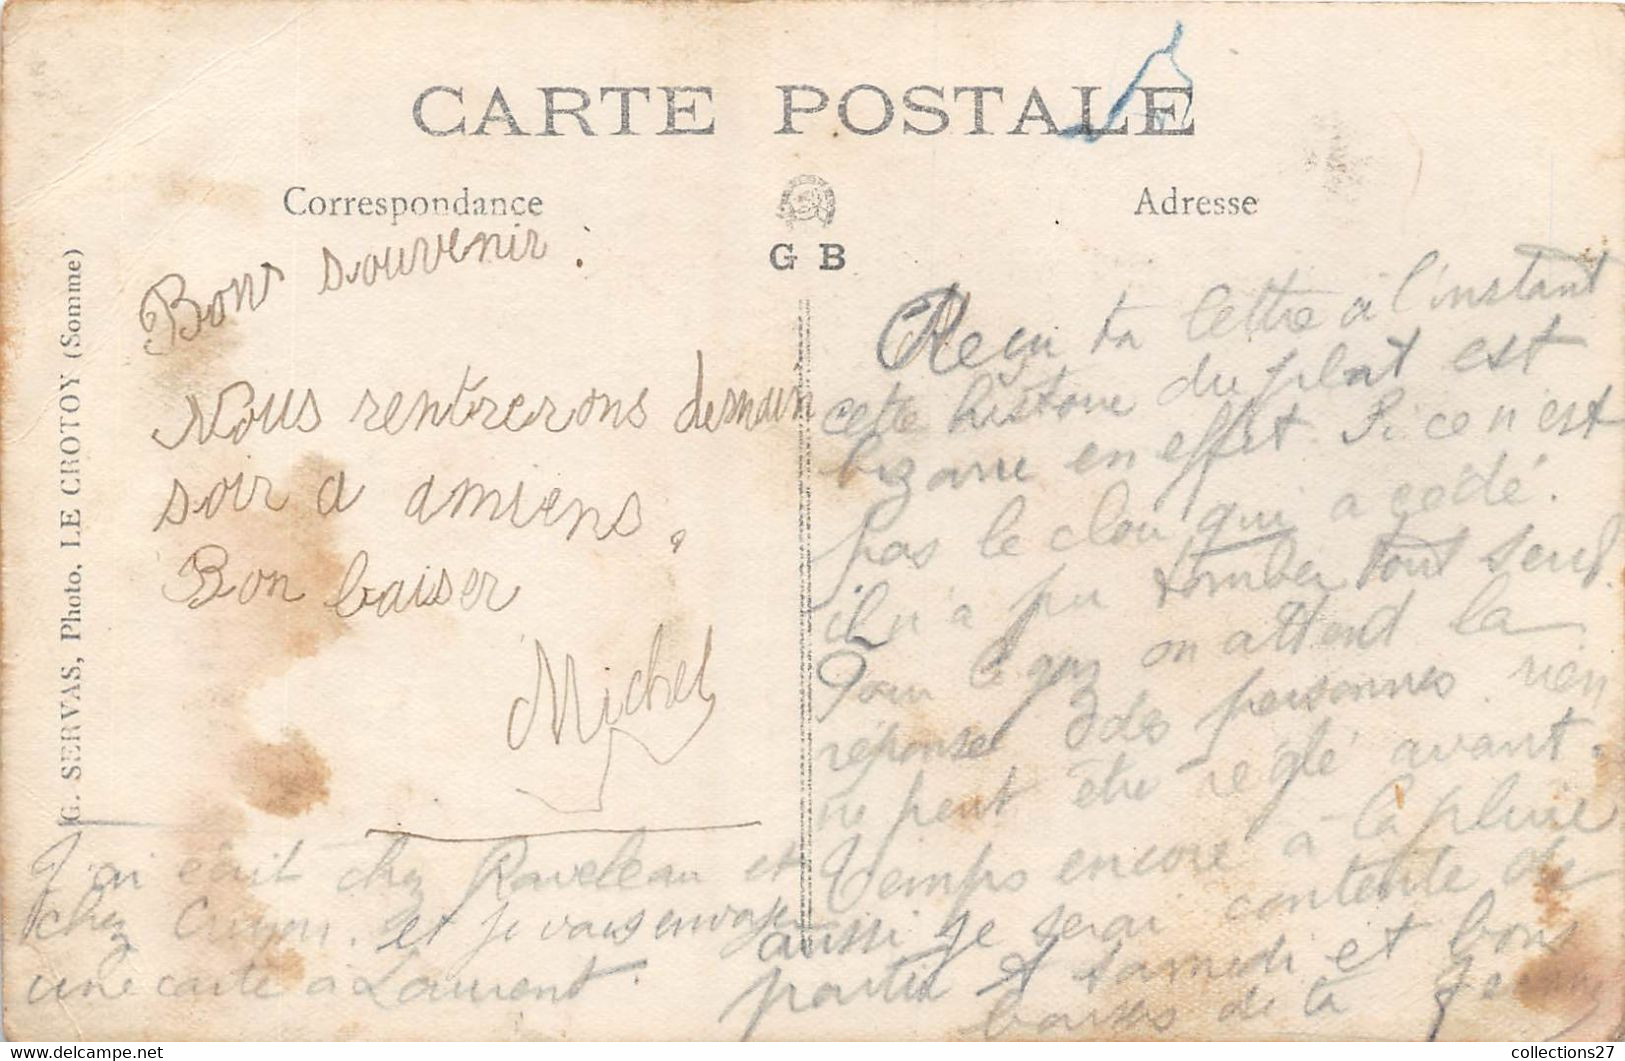 CARTE POSTALE
Correspondance
Adresse
G B
G. SERVAS, Photo, LE CROTOY (Somme)
Bons souvenir.
Nous rentrerons demain
soir a amiens.
Bon baiser
Michel
J'ai écrit chez Raveleau et
chez et je vais envoyer
une carte à Laurent.
Reçu ta lettre à l'instant
cette histoire du plat est
bizarre en effet. Si ce n'est
pas le clou qui a cédé.
il n'a pu tomber tout seul.
Pour le gaz on attend la
réponse des personnes rien
ne peut être réglé avant.
Temps encore à la pluie
aussi je serai contente de
partir samedi et bons
baisers de ta femme
collections27